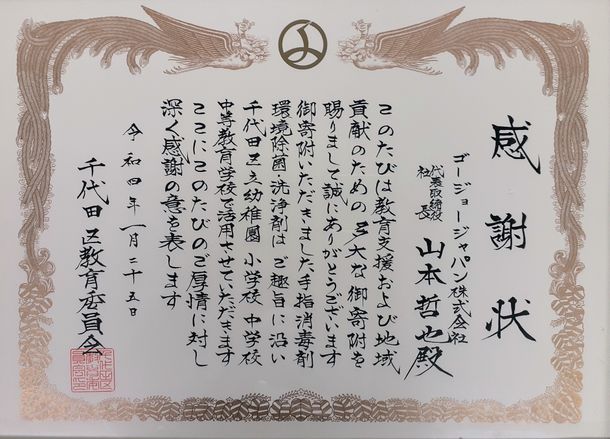 感謝状
ゴージョージャパン株式会社
代表取締役
社長
山本哲也殿
このたびは教育支援および地域
貢献のための多大な御寄附を
賜りまして誠にありがとうございます
御寄附いただきました手指消毒剤
環境除菌・洗浄剤は ご趣旨に沿い
千代田区立幼稚園 小学校 中学校
中等教育学校で活用させていただきます
ここにこのたびのご厚情に対し
深く感謝の意を表します
令和四年一月二十五日
千代田区教育委員会